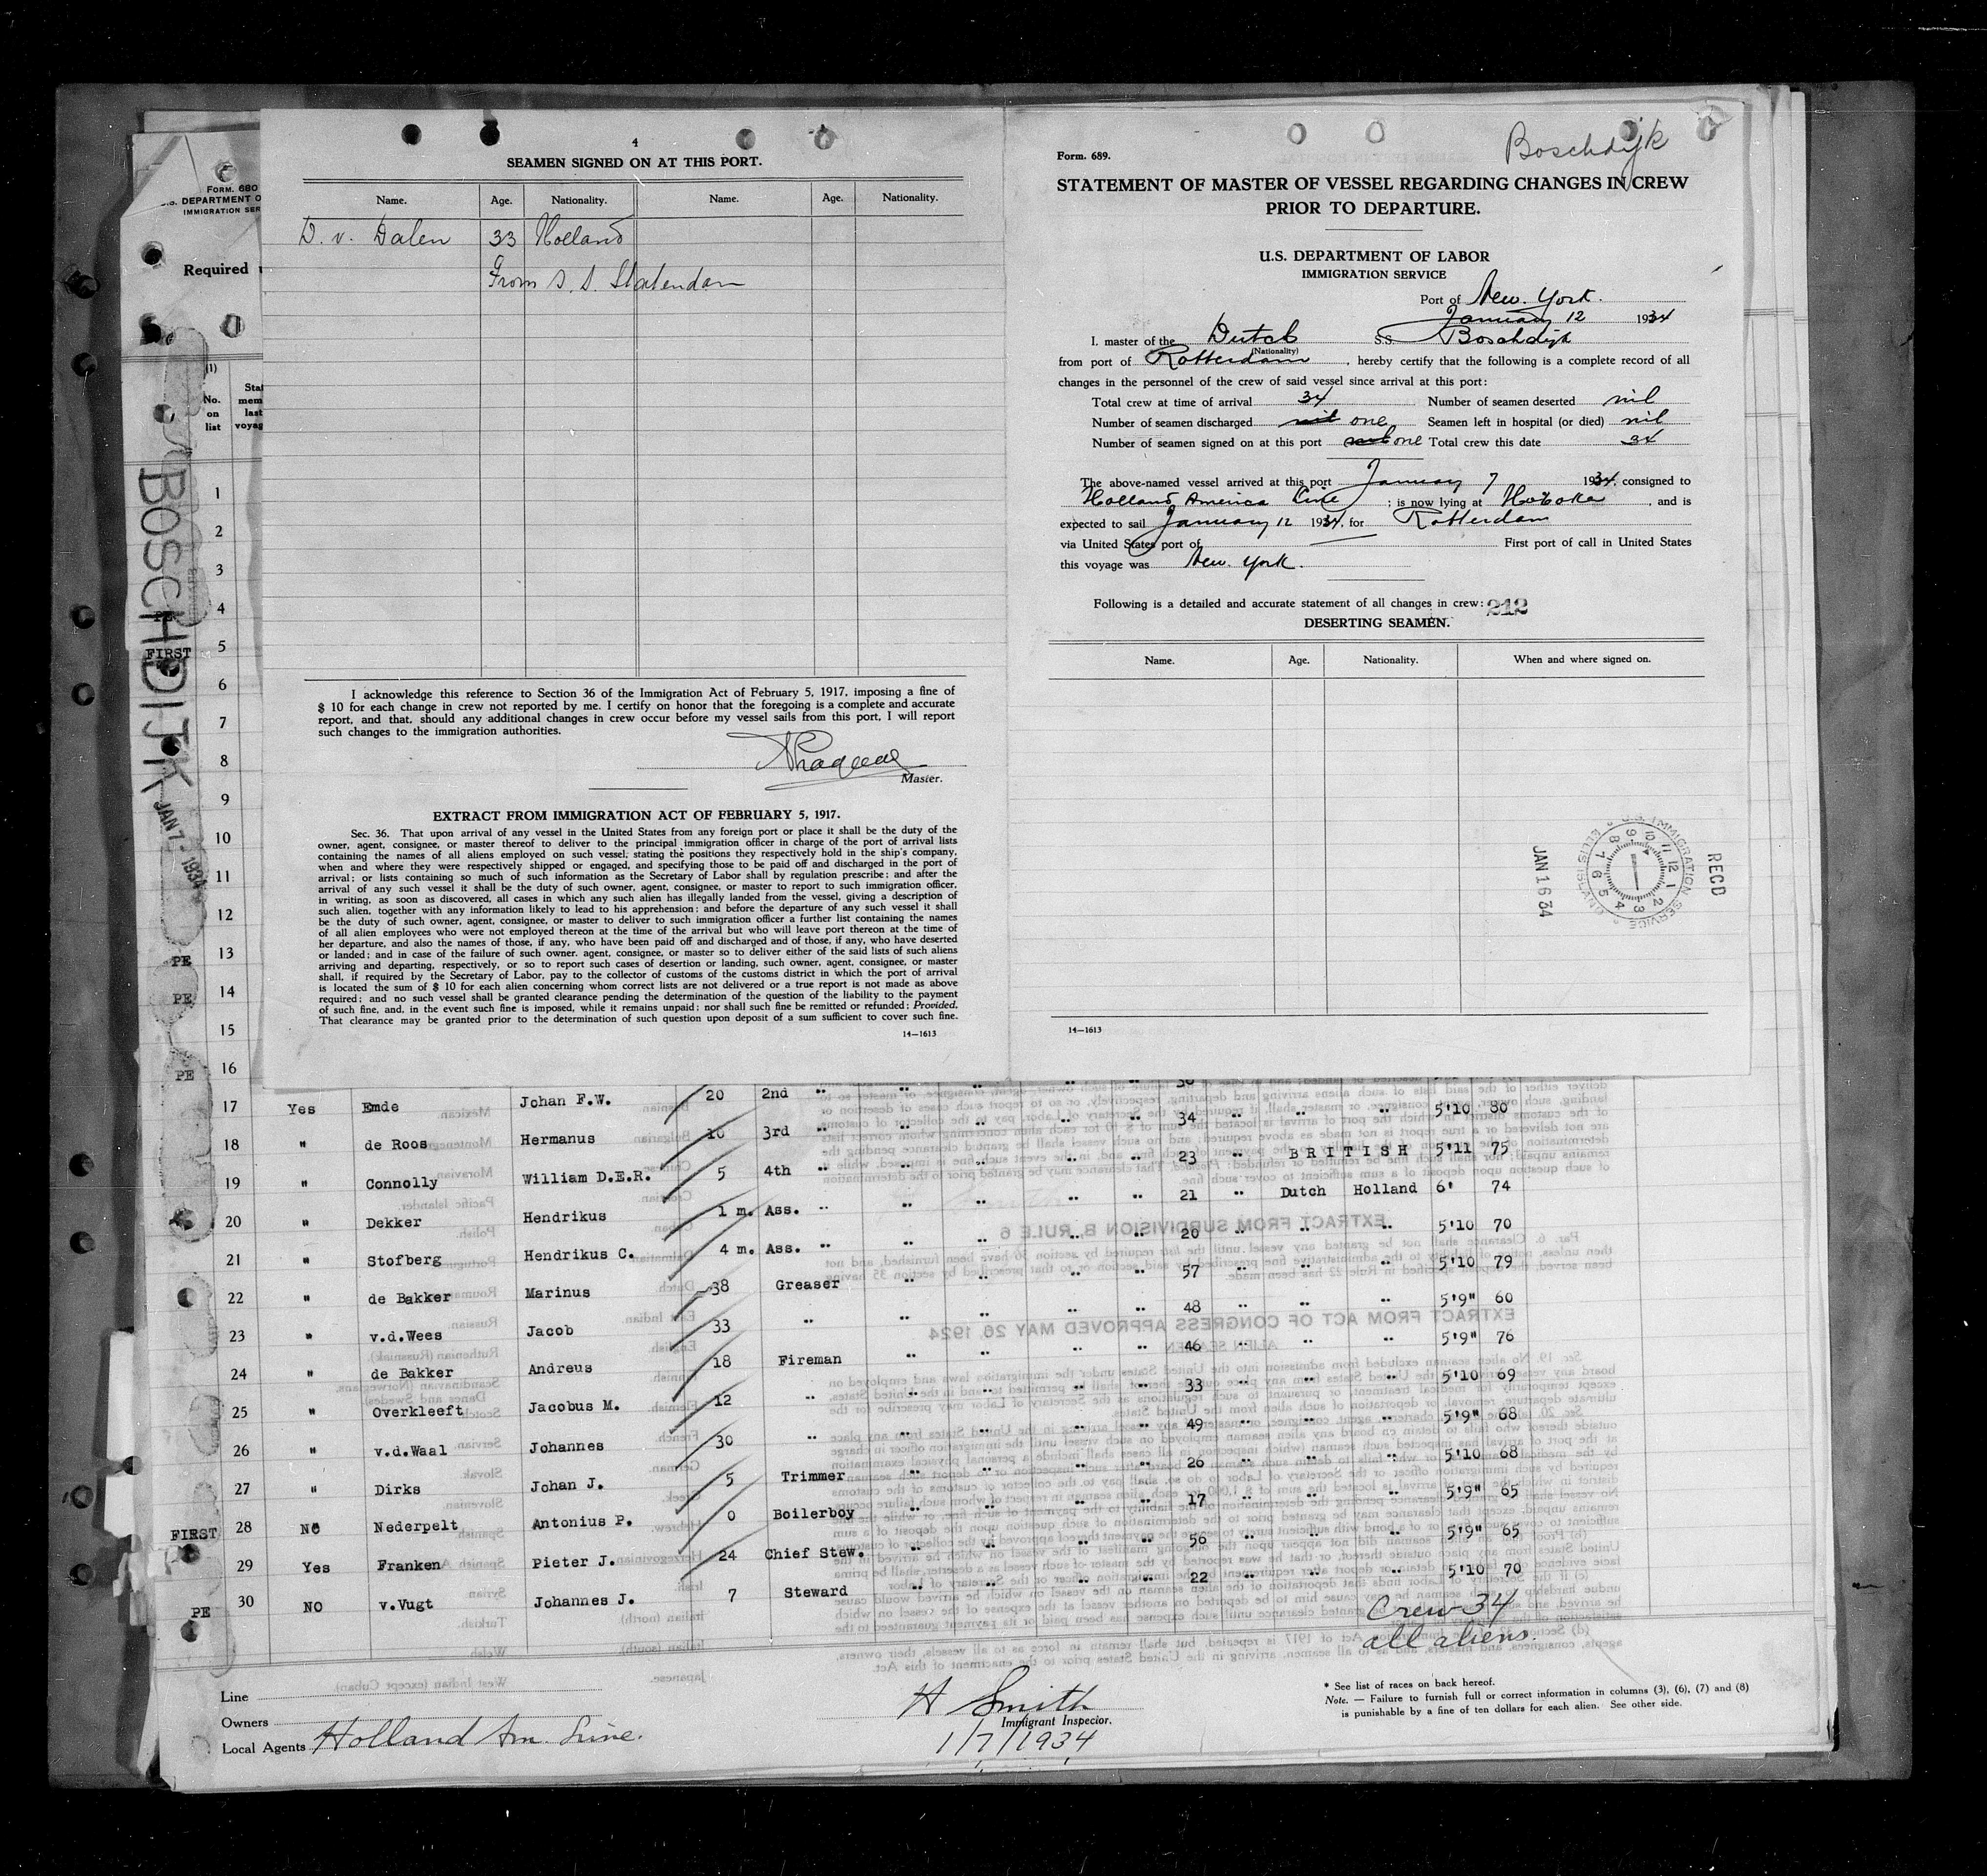 4
SEAMEN SIGNED ON AT THIS PORT.
Name. Age. Nationality. Name. Age. Nationality.
D. v. Dalen 33 Holland
From S. S. Statendam
I acknowledge this reference to Section 36 of the Immigration Act of February 5, 1917, imposing a fine of
$ 10 for each change in crew not reported by me. I certify on honor that the foregoing is a complete and accurate
report, and that, should any additional changes in crew occur before my vessel sails from this port, I will report
such changes to the immigration authorities.
Master.
EXTRACT FROM IMMIGRATION ACT OF FEBRUARY 5, 1917.
Sec. 36. That upon arrival of any vessel in the United States from any foreign port or place it shall be the duty of the
owner, agent, consignee, or master thereof to deliver to the principal immigration officer in charge of the port of arrival lists
containing the names of all aliens employed on such vessel, stating the positions they respectively hold in the ship's company,
when and where they were respectively shipped or engaged, and specifying those to be paid off and discharged in the port of
arrival; or lists containing so much of such information as the Secretary of Labor shall by regulation prescribe; and after the
arrival of any such vessel it shall be the duty of such owner, agent, consignee, or master to report to such immigration officer,
in writing, as soon as discovered, all cases in which any such alien has illegally landed from the vessel, giving a description of
such alien, together with any information likely to lead to his apprehension; and before the departure of any such vessel it shall
be the duty of such owner, agent, consignee, or master to deliver to such immigration officer a further list containing the names
of all alien employees who were not employed thereon at the time of the arrival but who will leave port thereon at the time of
her departure, and also the names of those, if any, who have been paid off and discharged and of those, if any, who have deserted
or landed; and in case of the failure of such owner, agent, consignee, or master so to deliver either of the said lists of such aliens
arriving and departing, respectively, or so to report such cases of desertion or landing, such owner, agent, consignee, or master
shall, if required by the Secretary of Labor, pay to the collector of customs of the customs district in which the port of arrival
is located the sum of $ 10 for each alien concerning whom correct lists are not delivered or a true report is not made as above
required; and no such vessel shall be granted clearance pending the determination of the question of the liability to the payment
of such fine, and, in the event such fine is imposed, while it remains unpaid; nor shall such fine be remitted or refunded: Provided,
That clearance may be granted prior to the determination of such question upon deposit of a sum sufficient to cover such fine.
14—1613
Boschdijk
Form. 689.
STATEMENT OF MASTER OF VESSEL REGARDING CHANGES IN CREW
PRIOR TO DEPARTURE.
U.S. DEPARTMENT OF LABOR
IMMIGRATION SERVICE
Port of New York.
January 12 1934
I. master of the Dutch S.S. Boschdijk
(Nationality)
from port of Rotterdam, hereby certify that the following is a complete record of all
changes in the personnel of the crew of said vessel since arrival at this port:
Total crew at time of arrival 34 Number of seamen deserted nil
Number of seamen discharged nil one Seamen left in hospital (or died) nil
Number of seamen signed on at this port nil one Total crew this date 34
The above-named vessel arrived at this port January 7 1934, consigned to
Holland America Line; is now lying at Hoboken, and is
expected to sail January 12 1934, for Rotterdam
via United States port of First port of call in United States
this voyage was New York.
Following is a detailed and accurate statement of all changes in crew: 212
DESERTING SEAMEN.
Name. Age. Nationality. When and where signed on.
RECD
U.S. IMMIGRATION SERVICE
JAN 16 34
14—1613
FORM. 680
U.S. DEPARTMENT O
IMMIGRATION SER
Required
(1)
No. on list
BOSCHDIJK
JAN 7 - 1934
1
2
3
PE 4
FIRST 5
6
7
8
9
10
11
12
PE 13
PE 14
15
PE 16
17 Yes Emde Johan F.W. 20 2nd " " " " " 34 " " " 5'10 80
18 " de Roos Hermanus 10 3rd " " " " " 23 " BRITISH 5'11 75
19 " Connolly William D.E.R. 5 4th " " " " " 21 " Dutch Holland 6' 74
20 " Dekker Hendrikus 1 m. Ass. " " " " " 20 " " " 5'10 70
21 " Stofberg Hendrikus C. 4 m. Ass. " " " " " 57 " " " 5'10 79
22 " de Bakker Marinus 38 Greaser " " " " 48 " " " 5'9" 60
23 " v.d.Wees Jacob 33 " " " " " 46 " " " 5'9" 76
24 " de Bakker Andreus 18 Fireman " " " " 33 " " " 5'10 69
25 " Overkleeft Jacobus M. 12 " " " " " 49 " " " 5'9" 68
26 " v.d.Waal Johannes 30 " " " " " 26 " " " 5'10 68
27 " Dirks Johan J. 5 Trimmer " " " " 17 " " " 5'9" 65
FIRST 28 No Nederpelt Antonius P. 0 Boilerboy " " " " 56 " " " 5'9" 65
29 Yes Franken Pieter J. 24 Chief Stew. " " " " 22 " " " 5'10 70
PE 30 NO v.Vugt Johannes J. 7 Steward
Crew 34
all aliens.
Line
Owners
Local Agents Holland Am. Line.
A Smith
Immigrant Inspector.
1/7/1934
* See list of races on back hereof.
Note. — Failure to furnish full or correct information in columns (3), (6), (7) and (8)
is punishable by a fine of ten dollars for each alien. See other side.